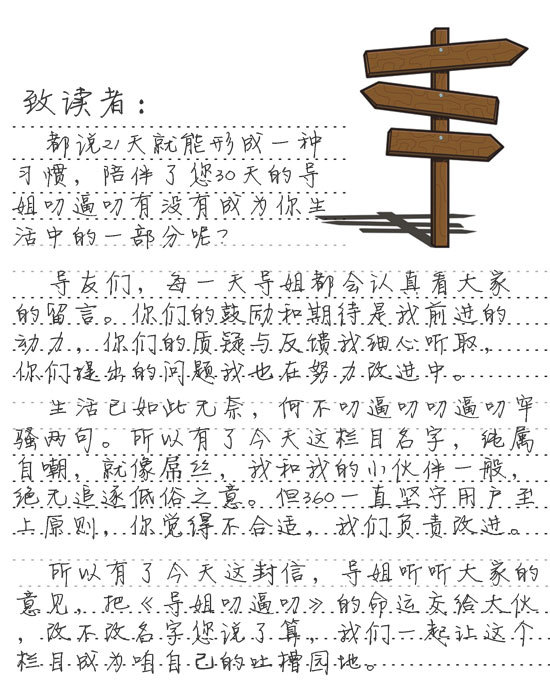 致读者：
都说21天就能形成一种
习惯，陪伴了您30天的导
姐叨逼叨有没有成为你生
活中的一部分呢？
导友们，每一天导姐都会认真看大家
的留言。你们的鼓励和期待是我前进的
动力，你们的质疑与反馈我细心听取，
你们提出的问题我也在努力改进中。
生活已如此无奈，何不叨逼叨叨逼叨牢
骚两句。所以有了今天这栏目名字，纯属
自嘲，就像屌丝，我和我的小伙伴一般，
绝无追逐低俗之意。但360一直坚守用户至
上原则，你觉得不合适，我们负责改进。
所以有了今天这封信，导姐听听大家的
意见，把《导姐叨逼叨》的命运交给大伙
，改不改名字您说了算，我们一起让这个
栏目成为咱自己的吐槽园地。